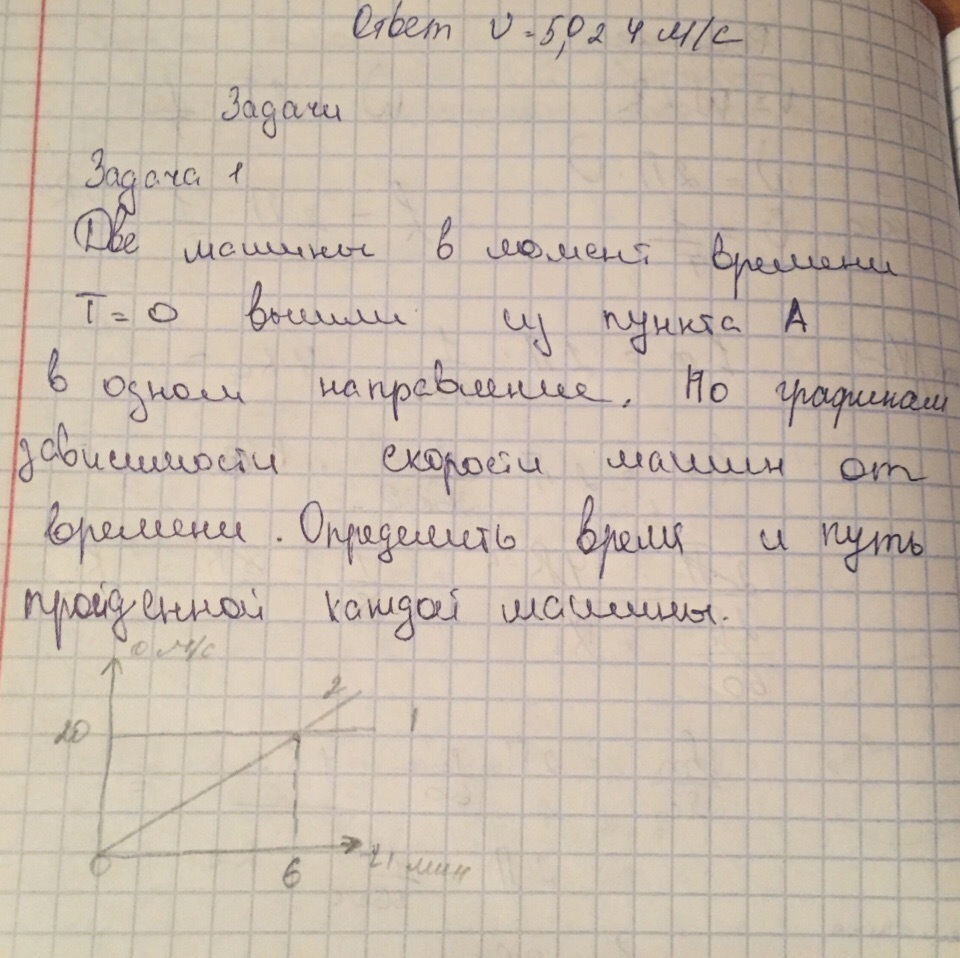 Ответ υ=5,024 м/с
Задачи
Задача 1
Две машины в момент времени
T=0 вышли из пункта А
в одном направление. По графикам
зависимости скорости машин от
времени. Определить время и путь
пройденной каждой машины.
υ м/с
2
20
1
0
6
t, мин